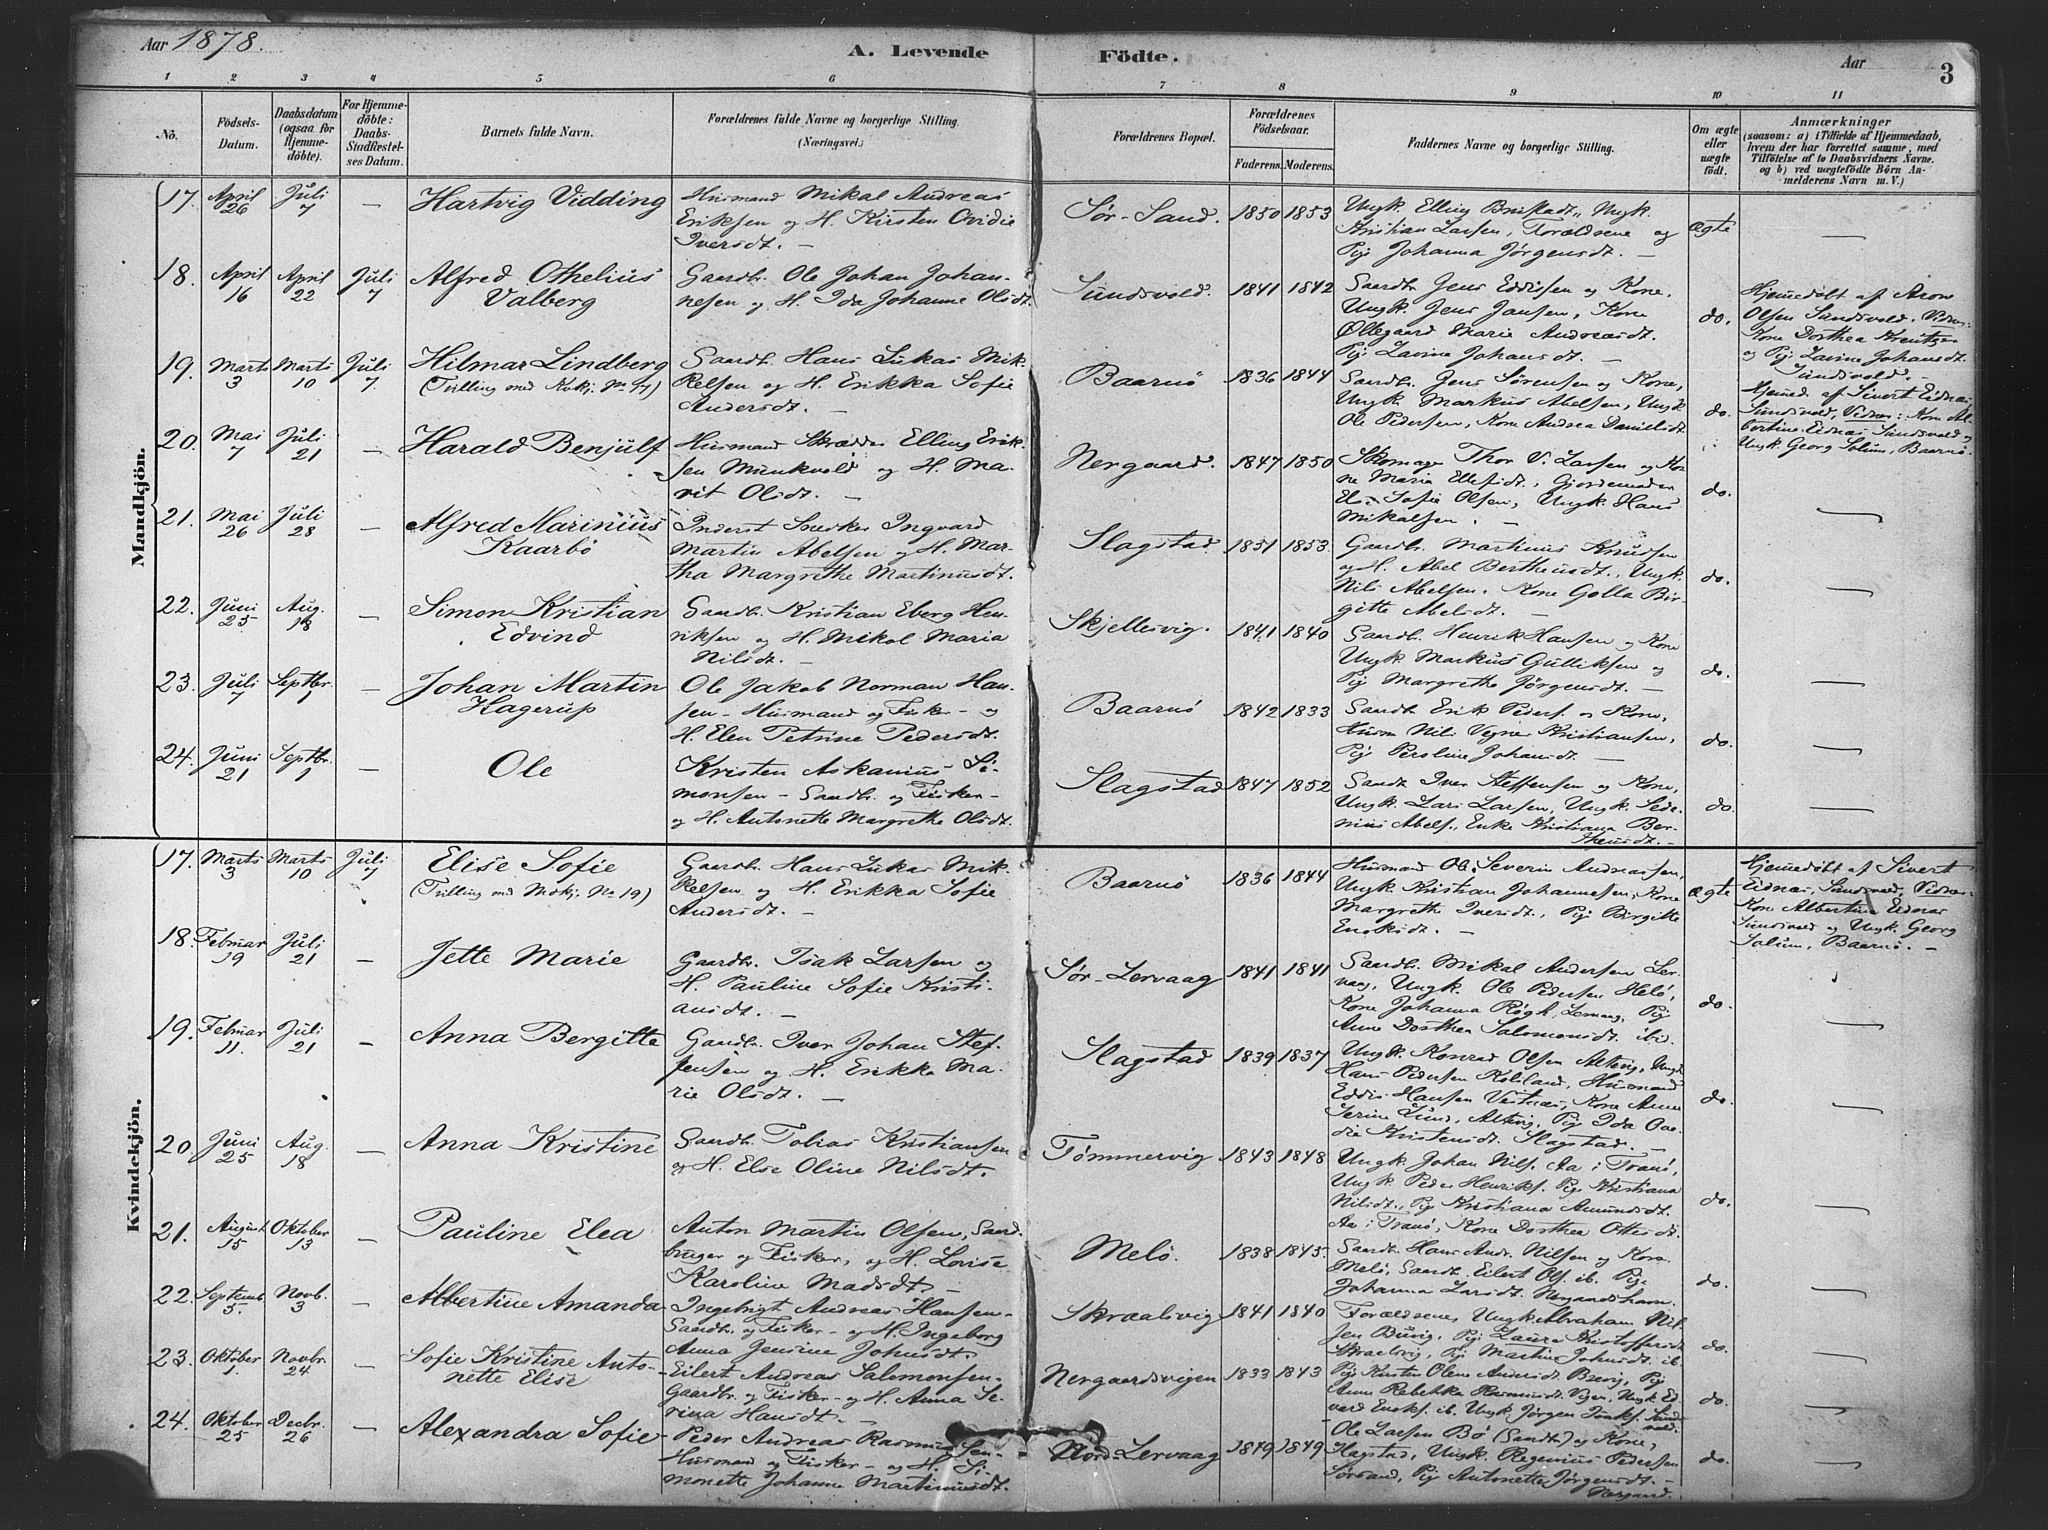 Aar 1878.
A. Levende Födte.
Aar
3
1 2 3 4 5 6 7 8 9 10 11
No.
Födsels-Datum.
Daabsdatum (ogsaa for Hjemmedöbte).
For Hjemmedöbte: Daabs-Stadfæstelses Datum.
Barnets fulde Navn.
Forældrenes fulde Navne og borgerlige Stilling. (Næringsvei.)
Forældrenes Bopæl.
Forældrenes Födselsaar.
Faderens. Moderens.
Faddernes Navne og borgerlige Stilling.
Om ægte eller uægte födt.
Anmærkninger
(saasom: a) i Tilfælde af Hjemmedaab, hvem der har forrettet samme, med Tilföielse af to Daabsvidners Navne, og b) ved uægtefödte Börn Anmelderens Navn m. V.)
Mandkjön.
17. April 26 Juli 7 — Hartvig Vidding
Husmand Mikal Andreas
Eriksen og H. Kirsten Ovidie
Iversdt. —
Sør-Sand. 1850 1853
Ungk. Elling Brustadt, Ungk.
Kristian Larsen, Forældrene og
Pig Johanna Jørgensdt. —
Ægte —
18. April 16 April 22 Juli 7 Alfred Othelius
Valberg
Gaardb. Ole Johan Johan-
nesen og H. Ida Johanne Olsdt.
Sundsvold. 1841 1842
Gaardb. Jens Eddissen og Kone,
Ungk. Jens Jansen, Kone
Øllegaard Maria Andreasdt.
Pig. Lavine Johansdt. —
do.
Hjemmedøbt af Aron
Olsen Sundsvold. Vidner:
Kone Dorthea Kreutzer
og Pig Lavine Johansdt.
Sundsvold. —
19. Marts 3 Marts 10 Juli 7 Hilmar Lindberg
(Tvilling med Kvkj. No 17)
Gaardb. Hans Lukas Mik-
kelsen og H. Erikka Sofie
Andersdt. —
Baarnö 1836 1844
Gaardb. Jens Sørensen og Kone,
Ungk. Markus Abelsen, Ungk.
Ole Pedersen, Kone Andrea Danielsdt.
do.
Hjemmed. af Sivert Eidnæs
Sundsvold, Vidner: Kone Al-
bertine Eidnæs Sundsvold og
Ungk. Georg Solum, Baarnö.
20. Mai 7 Juli 21 — Harald Benjülf
Husmand Skrædder Elling Erik-
sen Munkvold og H. Ma-
rit Olsdt. —
Nergaard. 1847 1850
Skomager Thor V. Larsen og Ko-
ne Maria Ellefsdt., Gjordemoder
Else Sofie Olsen, Ungk. Hans
Mikalsen. —
do. —
21. Mai 26 Juli 28 — Alfred Marinius
Kaarbö
Inderst Snedker Ingvard
Martin Abelsen og H. Mar-
tha Margrethe Martinusdt.
Slagstad. 1851 1853.
Gaardb. Martinus Knudsen
og H. Abel Bertheusdt., Ungk.
Nils Abelsen. Kone Golla Bir-
gitte Abelsdt. —
do. —
22. Juni 25 Aug. 18 — Simon Kristian
Edvind
Gaardb. Kristian Eberg Hen-
riksen og H. Mikal Maria
Nilsdt. —
Skjellesvig. 1841 1840
Gaardb. Henrik Hansen og Kone
Ungk. Markus Gulliksen og
Pig Margrethe Jørgensdt. —
do. —
23. Juli 7 Septbr. — Johan Martin
Hagerup
Ole Jakob Norman Han-
sen - Husmand og Fisker - og
H. Elen Petrine Pedersdt.
Baarnö 1842 1833
Gaardb. Erik Peders. og Kone,
Husm. Nils Vegner Kristiansen,
Pig Peroline Johansdt. —
do. —
24. Juni 21 Septbr. 1 — Ole
Kristen Askanius Si-
monsen - Gaardb. og Fisker -
og H. Antonette Margrethe Olsdt.
Slagstad 1847 1852
Gaardb. Iver Steffensen og Kone,
Ungk. Lars Larsen, Ungk. Pede-
nius Abels., Enke Kristiana Ber-
theusdt. —
do. —
Kvindekjön.
17. Marts 3 Marts 10 Juli 7 Elise Sofie
(Tvilling med Mdkj. No 19)
Gaardb. Hans Lukas Mik-
kelsen og H. Erikka Sofie
Andersdt. —
Baarnö 1836 1844
Husmand Ole Severin Andreassen,
Ungk. Kristian Johannesen, Kone
Margrethe Iversdt., Pig Birgitte
Enoksdt. —
Ægte
Hjemmedøbt af Sivert
Eidnæs, Sundsvold, Vidner:
Kone Albertine Eidnæs
Sundsvold og Ungk. Georg
Solum, Baarnö. —
18. Februar 19 Juli 21 — Jette Marie
Gaardb. Isak Larsen og
H. Pauline Sofie Kristi-
ansdt. —
Sør-Lervaag 1841 1841
Gaardb. Mikal Andersen Ler-
vaag, Ungk. Ole Pedersen Helö,
Kone Johanna Røgh, Lervaag, Pig
Anne Dorthea Salomonsdt. ibid.
do. —
19. Februar 11. Juli 21 — Anna Bergitte
Gaardb. Iver Johan Stef-
fensen og H. Erikka Ma-
rie Olsdt. —
Slagstad 1839 1837
Ungk. Konrad Olsen Alteng, Ungk.
Hans Pedersen Kolsland, Husmand
Eddis Hansen Vestnæs, Kone Anne
Serine Lund, Alteng, Pig Ida Ove-
dia Kristensdt. Slagstad. —
do. —
20. Juni 25 Aug. 18 — Anna Kristine
Gaardb. Tobias Kristiansen
og H. Else Oline Nilsdt.
Tömmervig 1843 1848
Ungk. Johan Nils. Aa i Tranö,
Ungk. Peder Henriks. Pig Kristiana
Nilsdt., Pig Kristiana Amundsdt.
Aa i Tranö, Kone Dorthea Ottesdt.
do. —
21. August 15 Oktober 13 — Pauline Elea
Anton Martin Olsen, Gaard-
bruger og Fisker, og H. Lovise
Karoline Madsdt. —
Melö. 1838 1845
Gaardb. Hans Andr. Nilsen og Kone
Melö, Gaardb. Eilert Ols. ib. Pig
Johanna Larsdt. Nergaardshavn.
do. —
22. Septemb. 5. Novb. 3 — Albertine Amanda
Ingebrigt Andreas Hansen -
Gaardb. og Fisker - og H. Ingeborg
Anna Jensine Johnsdt.
Skraalsvig 1841 1840
Forældrene, Ungk. Abraham Nil-
sen Buvig, Pig Laura Kristoffersdt.
Skraalsvig, Pig Martin Johnsdt. ib.
do. —
23. Oktober 1. Novbr. 24 — Sofie Kristine Anto-
nette Elise
Eilert Andreas Salomonsen -
Gaardb. og Fisker - og H. Anna Se-
verina Hansdt. —
Nergaardsvejen 1833 1843
Pig Kirsten Olene Andersdt. Buvig, Pig
Anne Rebekka Rasmusdt. Vigen, Ungk. Ed-
vard Enoks. ib. Ungk. Jørgen Isaks. Sunds-
vold.
do. —
24. Oktober 25 Decbr. 26 — Alexandra Sofie
Peder Andreas Rasmussen -
Husmand og Fisker - og H. Si-
monette Johanne Martinusdt.
Nord-Lervaag 1849 1849
Ole Larsen Bö (Gaardb.) og Kone,
Hagstad, Ungk. Regenius Pedersen
Sörsand, Pig Antonette Jørgensdt. —
Nergaard.
do. —